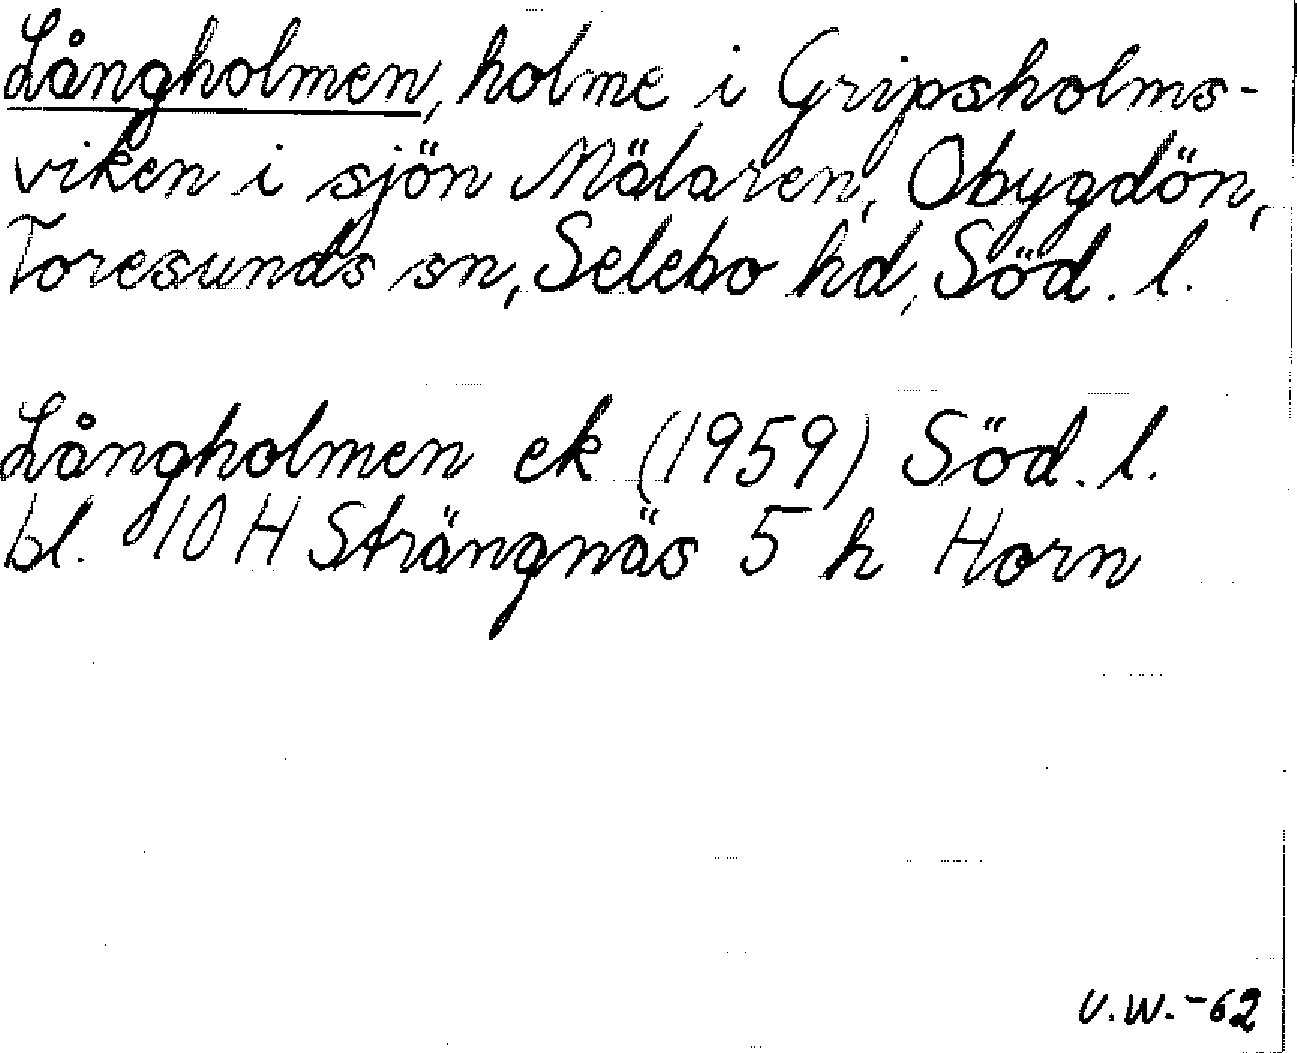 Långholmen, holme i Gripsholms-
viken i sjön Mälaren, Obygdön,
Toresunds sn, Selebo hd, Söd. l.
Långholmen ek (1959) Söd. l.
bl. 10 H Strängnäs 5 h Horn
V.W.-62